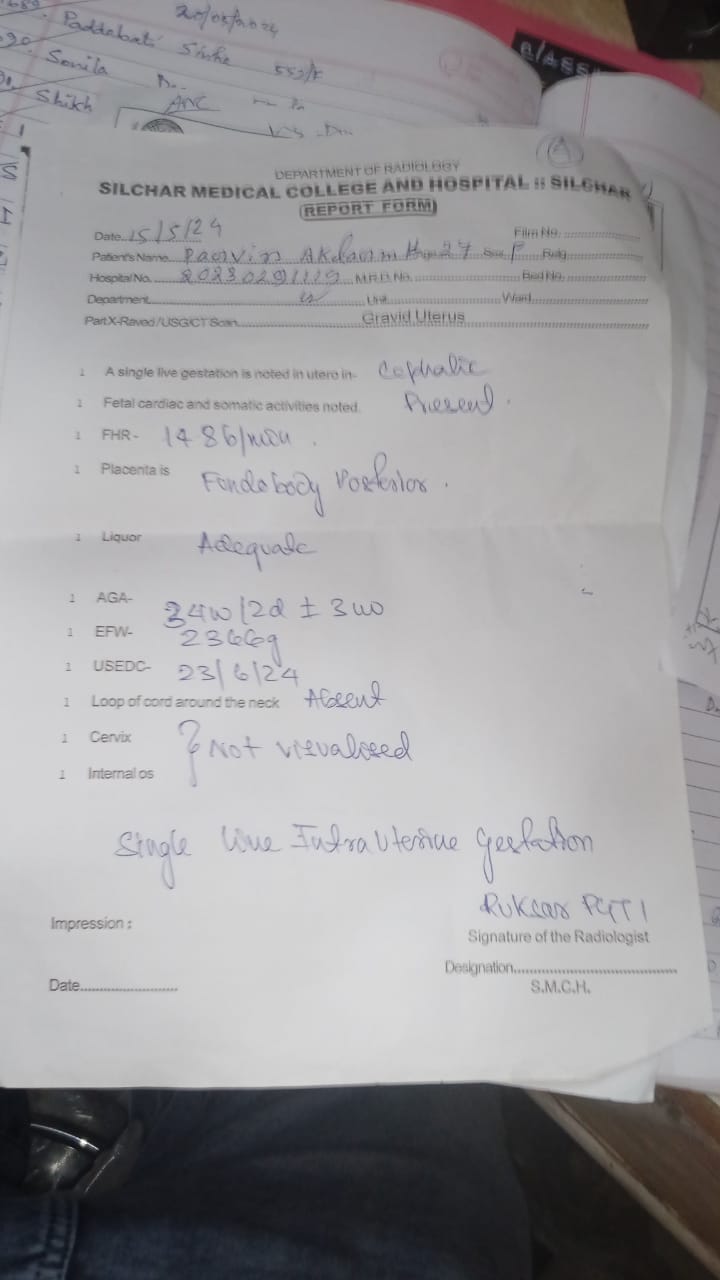 20/05/2024
Paddabati Sinha
Sonila 552/F
Shikh ANC
DEPARTMENT OF RADIOLOGY
SILCHAR MEDICAL COLLEGE AND HOSPITAL :: SILCHAR
(REPORT FORM)
Date..15/5/24 Film No.
Patient's Name. 27 Sex. F Relg.
Hospital No. M.R.D. No. Bed No.
Department Unit Ward
Part X-Rayed/USG/CT Scan Gravid Uterus
1 A single live gestation is noted in utero in- Cephalic
1 Fetal cardiac and somatic activities noted. Present.
1 FHR- 148b/min.
1 Placenta is Fundobody Posterior.
1 Liquor Adequate
1 AGA- 34w/2d ± 3w
1 EFW- 2366g
1 USEDC- 23/6/24
1 Loop of cord around the neck Absent
1 Cervix } Not visualised
1 Internal os
Single live Intrauterine gestation
Ruksar PGT1
Impression :
Signature of the Radiologist
Designation
Date S.M.C.H.